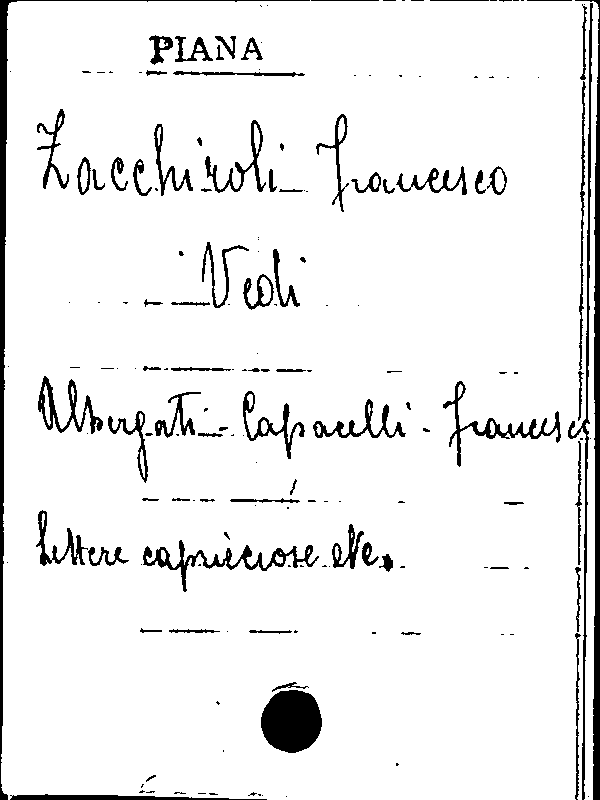 PIANA
Zacchiroli Francesco
Vedi
Albergati-Capacelli-Francesco
Lettere capricciose etc.